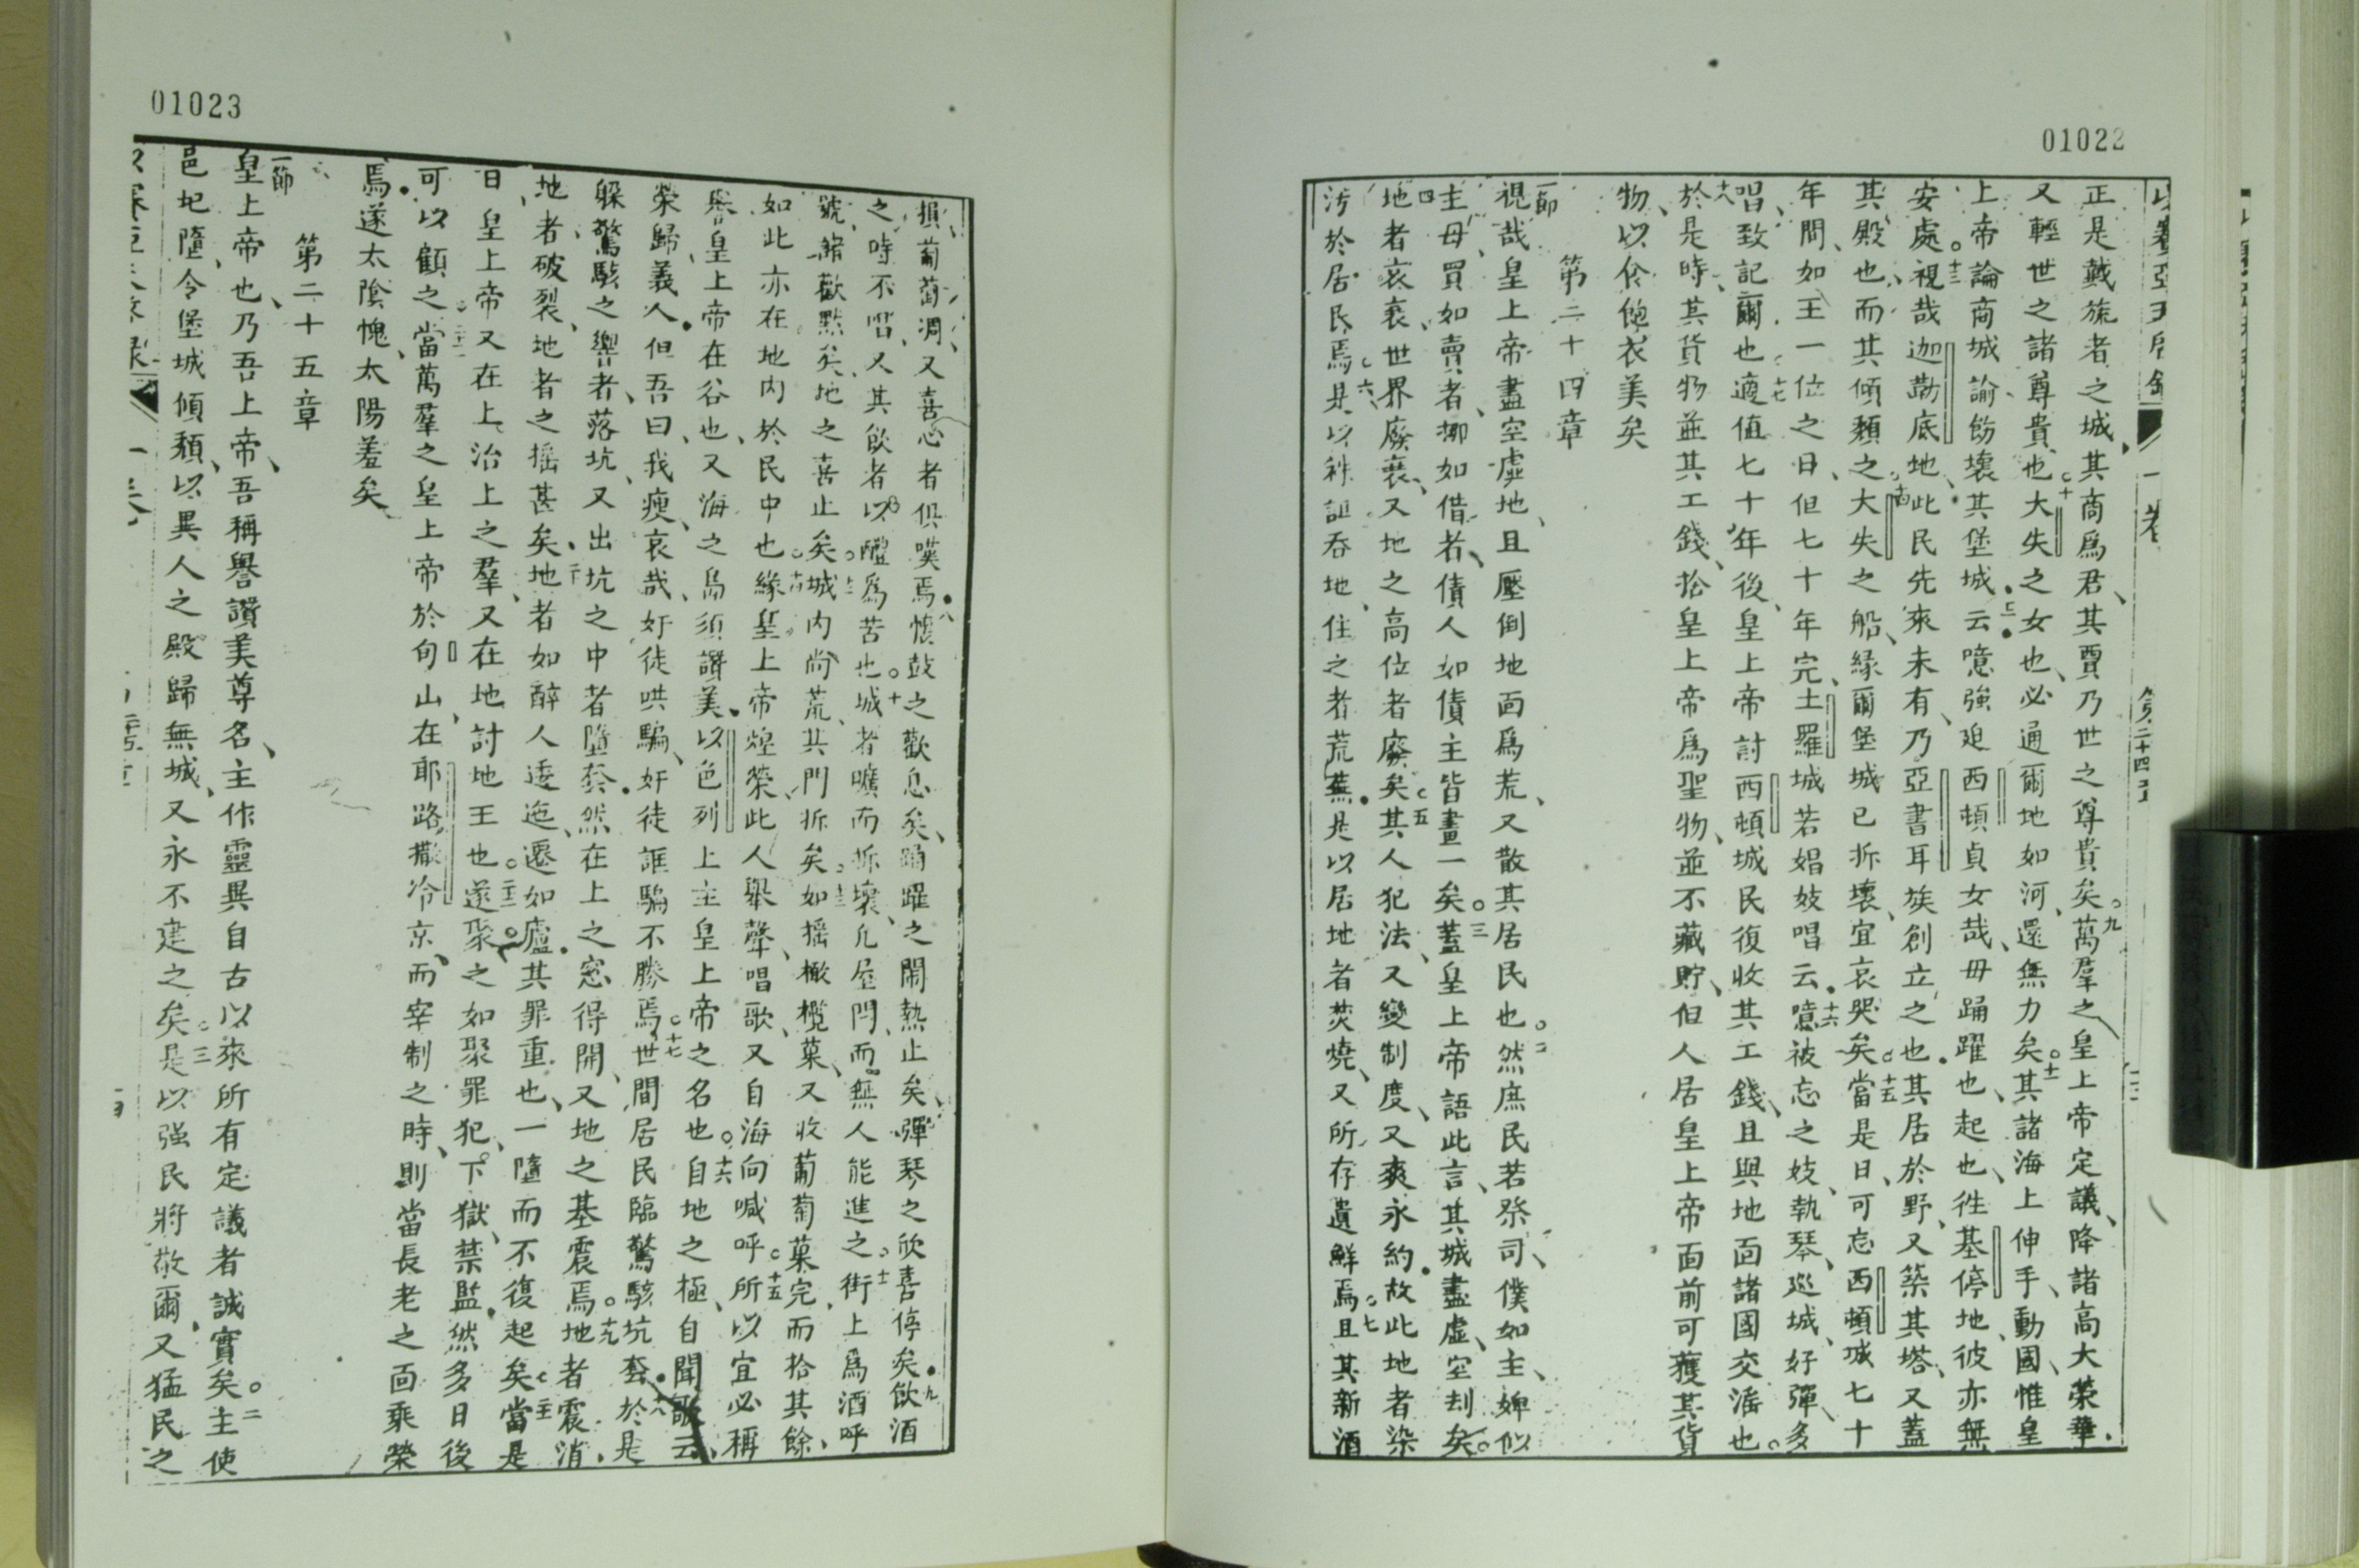 01022
一卷
正是戴旒者之城、其商爲君、其賈乃世之尊貴矣。九萬羣之皇上帝定議、降諸高大榮華、
又輕世之諸尊貴也。十大失之女也、必通爾地如河、還無力矣。十一其諸海上伸手、動國、惟皇
上帝論商城、諭飭壞其堡城。十二云、噫強迫西頓貞女哉、毋踊躍也、起也、徃基停地、彼亦無
安處。十三視哉迦勒底地、此民先來未有、乃亞書耳族創立之也。其居於野、又築其塔、又蓋
其殿也、而其傾頹之。十四大失之船、緣爾堡城已拆壞、宜哀哭矣。十五當是日、可忘西頓城七十
年間、如王一位之日、但七十年完、土羅城若娼妓唱云。十六噫被忘之妓、執琴、巡城、好彈、多
唱、致記爾也。十七適值七十年後、皇上帝討西頓城民復收其工錢、且與地面諸國交濳也。
十八於是時、其貨物並其工錢、拾皇上帝爲聖物、並不藏貯、但人居皇上帝面前可獲其貨
物、以食飽衣美矣
第二十四章
一節視哉皇上帝盡空虛地、且壓倒地面爲荒、又散其居民也。二然庶民若祭司、僕如主、婢似
主母、買如賣者、挪如借者、債人如債主皆畫一矣。三蓋皇上帝語此言、其城盡虛、空刦矣。
四地者哀衰、世界廢衰、又地之高位者廢矣。五其人犯法、又變制度、又爽永約。故此地者染
汚於居民焉。六是以神詛吞地、住之者荒蕪。是以居地者焚燒、又所存遺鮮焉。七且其新酒
01023
損、葡萄凋、又喜心者俱嘆焉。八懷鼓之歡息矣、踊躍之鬧熱止矣、彈琴之欣喜停矣。九飲酒
之時不唱、又其飲者以醴爲苦也。十城者曠而拆壞、凡屋閂、而無人能進之。十一街上爲酒呼
號、諸歡黙矣、地之喜止矣。十二城内尚荒、其門拆矣。十三如搖橄欖菓、又收葡萄菓完、而拾其餘、
如此亦在地内於民中也。十四緣皇上帝煌榮、此人舉聲、唱歌、又自海向喊呼。十五所以宜必稱
譽皇上帝在谷也、又海之島須讚美以色列上主皇上帝之名也。十六自地之極、自聞歌云、
榮歸義人。但吾曰、我瘦、哀哉、奸徒哄騙、奸徒誆騙不勝焉。十七世間居民臨驚駭坑套。十八於是
躱驚駭之響者、落坑、又出坑之中者墮套。然在上之窓得開、又地之基震焉。十九地者震消、
地者破裂、地者之搖甚矣。二十地者如醉人逶迤、遷如廬。其罪重也、一墮而不復起矣。二十一當是
日、皇上帝又在上、治上之羣、又在地討地王也。二十二遂聚之如聚罪犯、下獄、禁監。然多日後
可以顧之。二十三當萬羣之皇上帝於旬山、在耶路撒冷京、而宰制之時、則當長老之面乘榮
焉。遂太陰愧、太陽羞矣
第二十五章
一節皇上帝也、乃吾上帝、吾稱譽讚美尊名、主作靈異自古以來所有定議者誠實矣。二主使
邑圮墮、令堡城傾頹、以異人之殿歸無城、又永不建之矣。三是以强民將敬爾、又猛民之